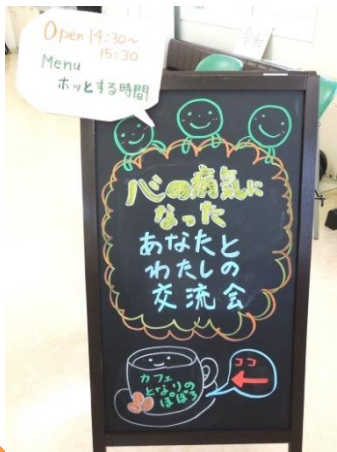 Open 14:30～
15:30
Menu
ホッとする時間
心の病気に
なった
あなたと
わたしの
交流会
カフェ
となりの
ぽぽろ
ココ